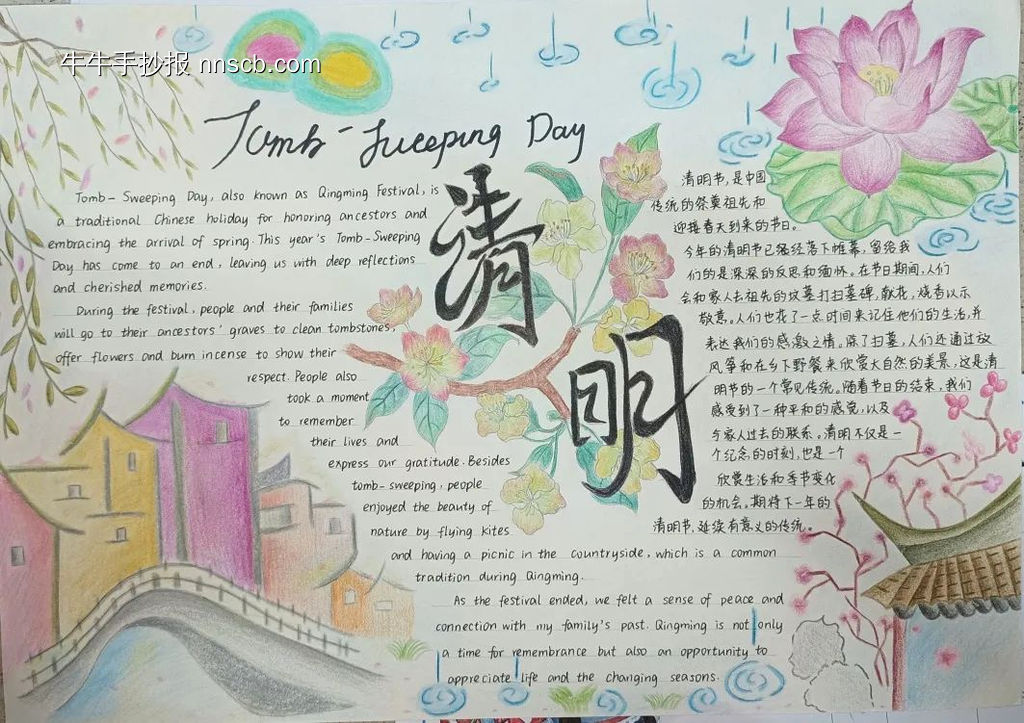 牛牛手抄报 nnscb.com
Tomb-Sweeping Day
清明
Tomb-Sweeping Day, also known as Qingming Festival, is
a traditional Chinese holiday for honoring ancestors and
embracing the arrival of spring. This year's Tomb-Sweeping
Day has come to an end, leaving us with deep reflections
and cherished memories.
During the festival, people and their families
will go to their ancestors' graves to clean tombstones,
offer flowers and burn incense to show their
respect. People also
took a moment
to remember
their lives and
express our gratitude. Besides
tomb-sweeping, people
enjoyed the beauty of
nature by flying kites
and having a picnic in the countryside, which is a common
tradition during Qingming.
As the festival ended, we felt a sense of peace and
connection with my family's past. Qingming is not only
a time for remembrance but also an opportunity to
appreciate life and the changing seasons.
清明节,是中国
传统的祭奠祖先和
迎接春天到来的节日。
今年的清明节已经落下帷幕,留给我
们的是深深的反思和缅怀。在节日期间,人们
会和家人去祖先的坟墓打扫墓碑,献花,烧香以示
敬意。人们也花了一点时间来记住他们的生活,并
表达我们的感激之情。除了扫墓,人们还通过放
风筝和在乡下野餐来欣赏大自然的美景,这是清
明节的一个常见传统。随着节日的结束,我们
感受到了一种平和的感觉,以及
与家人过去的联系。清明不仅是一
个纪念的时刻,也是一个
欣赏生活和季节变化
的机会。期待下一年的
清明节,延续有意义的传统。